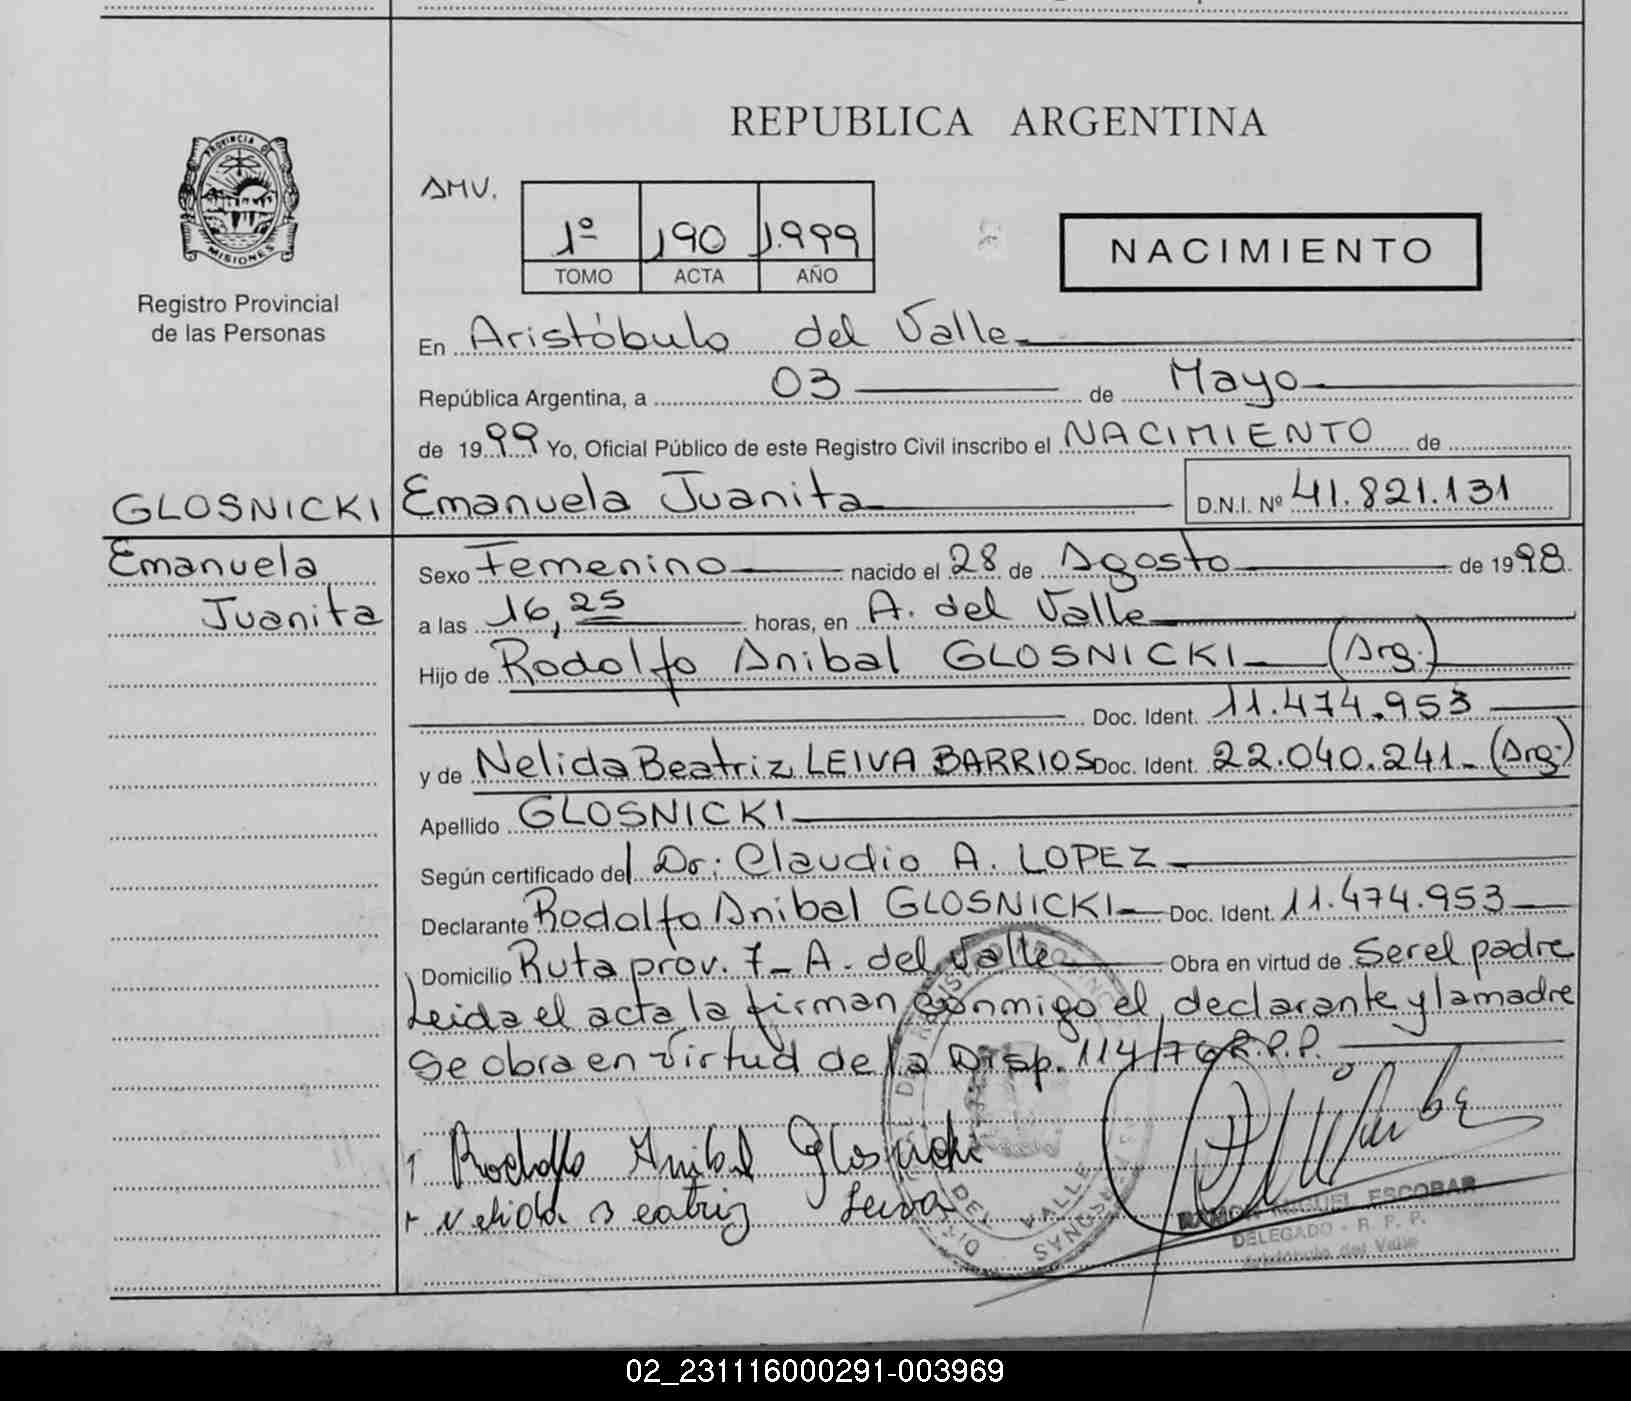 REPUBLICA ARGENTINA
PROVINCIA DE
MISIONES
Registro Provincial
de las Personas
AMV.
1º 190 1.999
TOMO ACTA AÑO
NACIMIENTO
En Aristóbulo del Valle
República Argentina, a 03 de Mayo
de 1999 Yo, Oficial Público de este Registro Civil inscribo el NACIMIENTO de
GLOSNICKI Emanuela Juanita D.N.I. Nº 41.821.131
Emanuela
Juanita
Sexo Femenino nacido el 28 de Agosto de 1998
a las 16,25 horas, en A. del Valle
Hijo de Rodolfo Anibal GLOSNICKI (Arg.)
Doc. Ident. 11.474.953
y de Nelida Beatriz LEIVA BARRIOS Doc. Ident. 22.040.241 - (Arg.)
Apellido GLOSNICKI
Según certificado del Dr: Claudio A. LOPEZ
Declarante Rodolfo Anibal GLOSNICKI Doc. Ident. 11.474.953
Domicilio Ruta prov. 7 - A. del Valle Obra en virtud de Ser el padre
Leida el acta la firman conmigo el declarante y la madre
Se obra en virtud de la Disp. 114/76 R.P.P.
Rodolfo Anibal Glosnicki
Nelida Beatriz Leiva
DEL VALLE
RAMON MIGUEL ESCOBAR
DELEGADO - R. P. P.
Aristóbulo del Valle
02_231116000291-003969